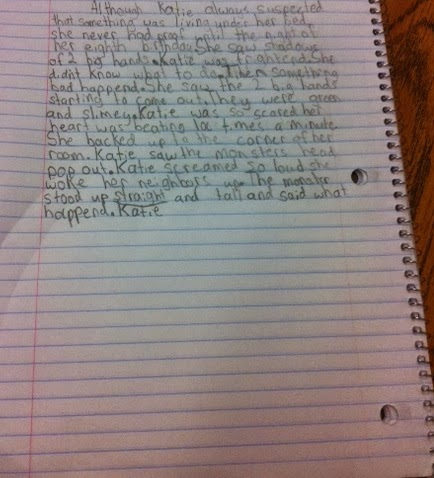 Although Katie always suspected
that something was living under her bed,
she never had proof until the night of
her eighth birthday. She saw shadows
of 2 big hands. Katie was frightend. She
didnt know what to do. Then something
bad happend. She saw the 2 big hands
starting to come out. They were green
and slimey. Katie was so scared her
heart was beating 100 times a minute
She backed up to the corner of her
room. Katie saw the monsters head
pop out. Katie screamed so loud she
woke her neighbors up. The monster
stood up straight and tall and said what
happend. Katie